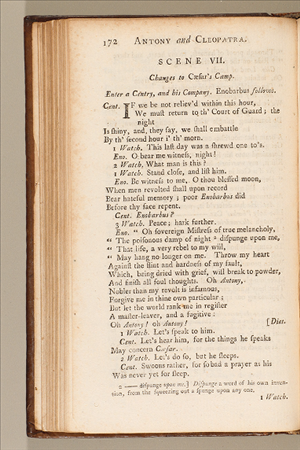 172 ANTONY and CLEOPATRA.
SCENE VII.
Changes to Cæsar's Camp.
Enter a Centry, and his Company. Enobarbus follows.
Cent. IF we be not reliev'd within this hour,
We must return to th' Court of Guard; the
night
Is shiny, and, they say, we shall embattle
By th' second hour i' th' morn.
1 Watch. This last day was a shrewd one to's.
Eno. O bear me witness, night!
2 Watch. What man is this?
1 Watch. Stand close, and list him.
Eno. Be witness to me, O thou blessed moon,
When men revolted shall upon record
Bear hateful memory; poor Enobarbus did
Before thy face repent.
Cent. Enobarbus?
3 Watch. Peace; hark further.
Eno. " Oh sovereign Mistress of true melancholy,
" The poisonous damp of night dispunge upon me,
" That life, a very rebel to my will,
" May hang no longer on me. Throw my heart
Against the flint and hardness of my fault,
Which, being dried with grief, will break to powder,
And finish all foul thoughts. Oh Antony,
Nobler than my revolt is infamous,
Forgive me in thine own particular;
But let the world rank me in register
A master-leaver, and a fugitive:
Oh Antony! oh Antony! [Dies.
1 Watch. Let's speak to him.
Cent. Let's hear him, for the things he speaks
May concern Cæsar.
2 Watch. Let's do so, but he sleeps.
Cent. Swoons rather, for so bad a prayer as his
Was never yet for sleep.
2 —— dispunge upon me.] Dispunge a word of his own inven-
tion, from the squeezing out a spunge upon any one.
1 Watch.